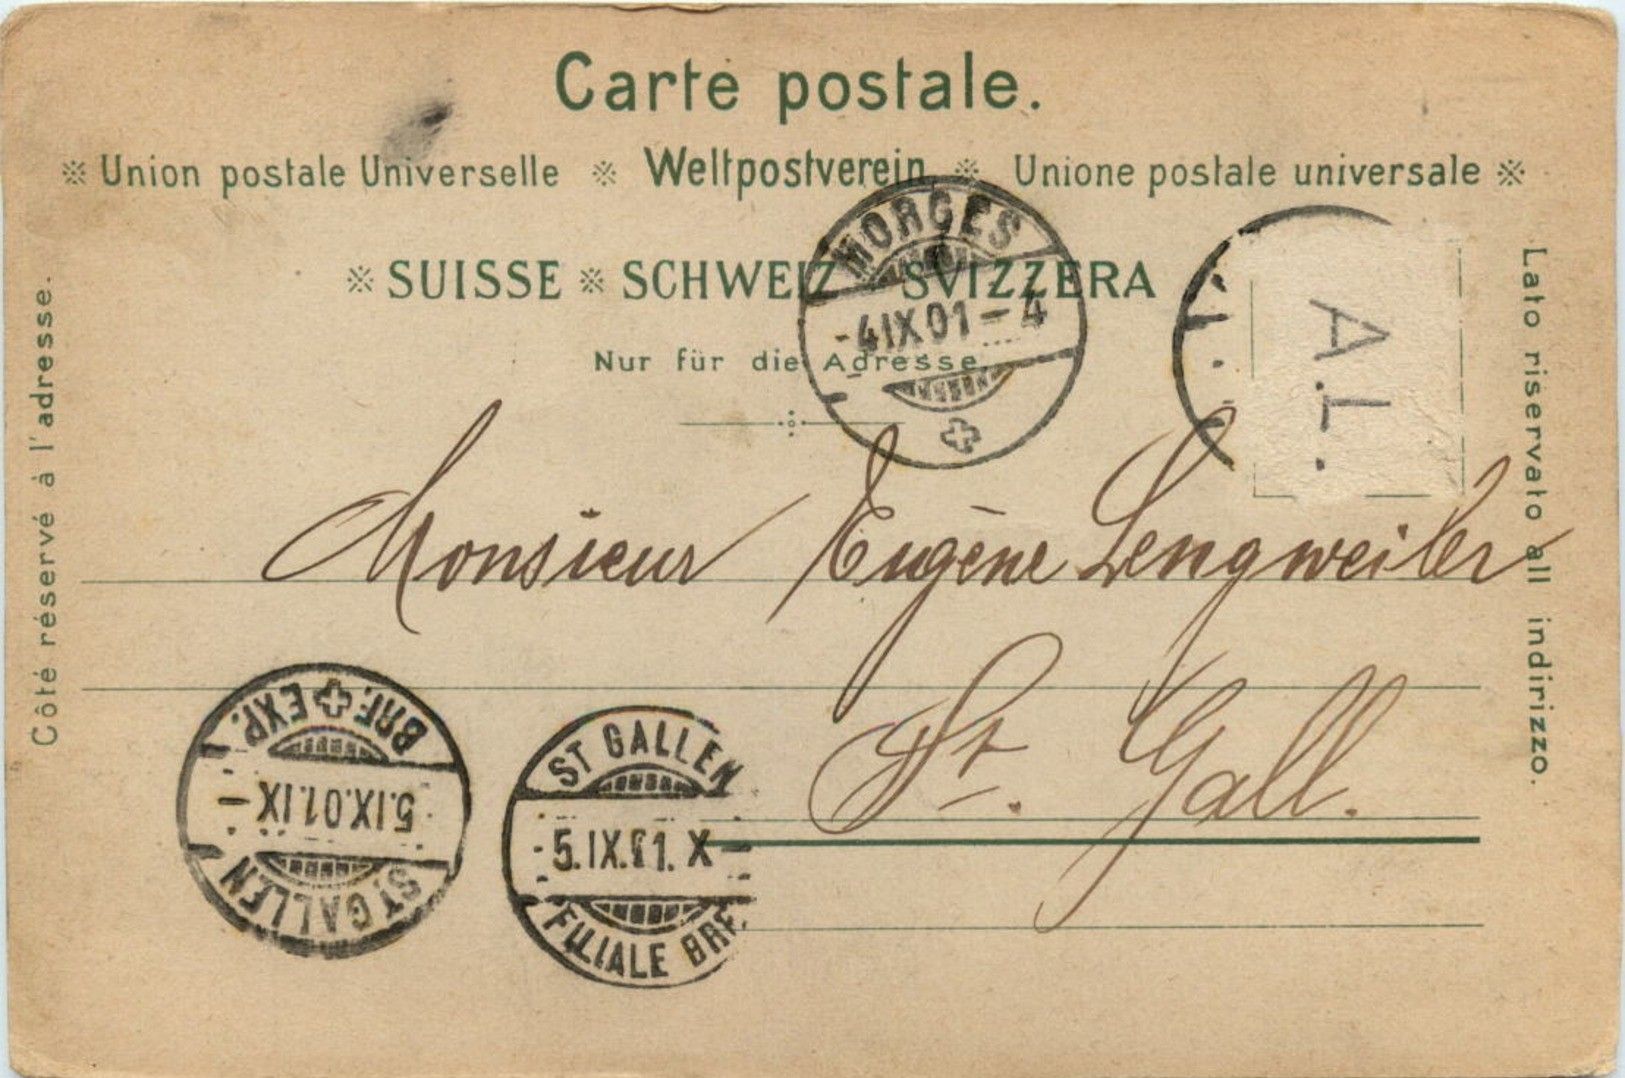 Carte postale.
※ Union postale Universelle ※ Weltpostverein ※ Unione postale universale ※
※ SUISSE ※ SCHWEIZ SVIZZERA
Nur für die Adresse.
Côté réservé à l'adresse.
Lato riservato all indirizzo.
MORGES
-4 IX 01 - 4
A.L.
Monsieur Eugène Lengweiler
St. Gall.
BRF. EXP.
5.IX.01.IX -
ST GALLEN
ST GALLEN
5.IX.01. X -
FILIALE BRF.